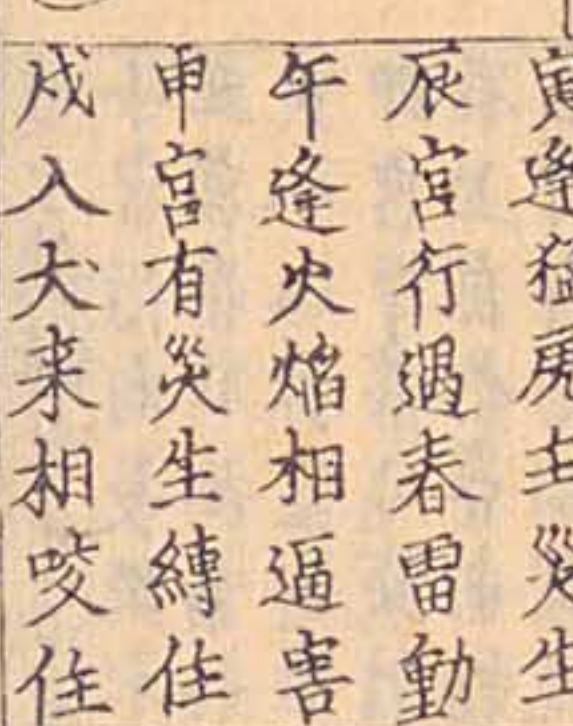 寅逢猛虎主災生
辰宮行遇春雷動
午逢火焰相逼害
申宮有災生縛住
戌入犬来相咬住